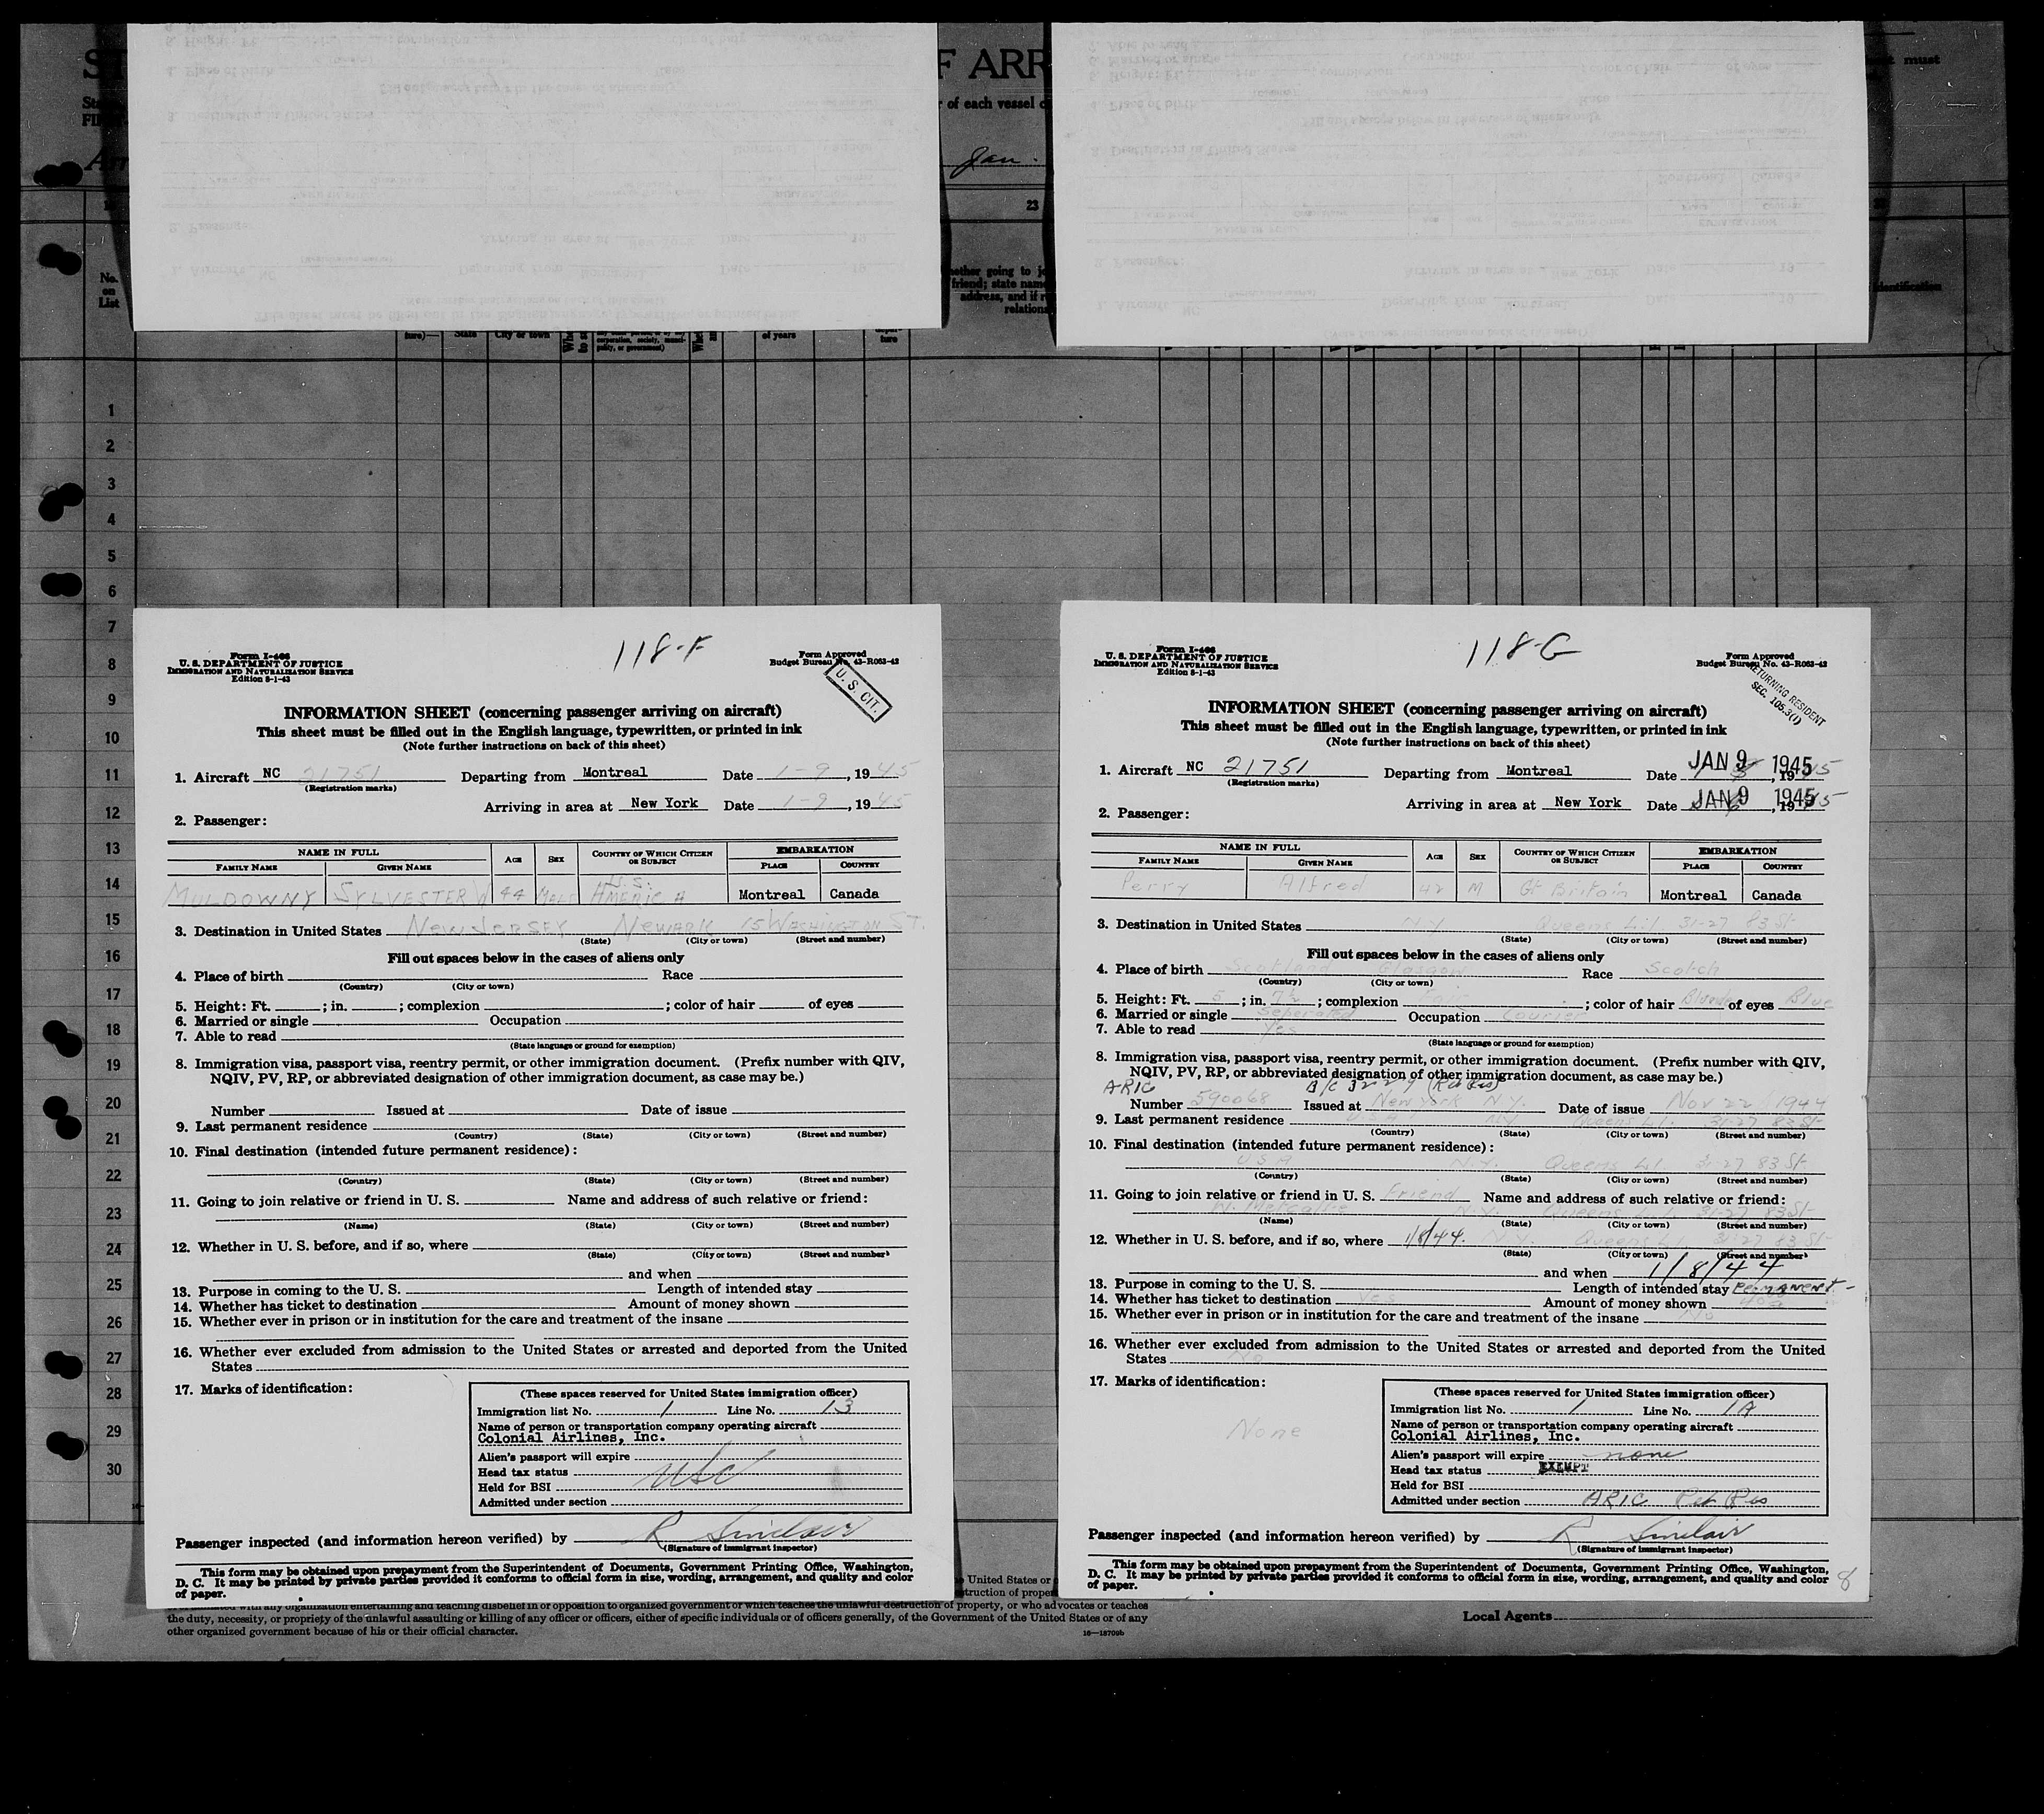 F ARR
must
of each vessel
Jan.
23
No.
on
List
friend; state name
address, and if
relations
identification
ture)—
State
City or town
of years
ture
1
2
3
4
5
6
7
8
9
10
11
12
13
14
15
16
17
18
19
20
21
22
23
24
25
26
27
28
29
30
118-F
Form I-466
U. S. DEPARTMENT OF JUSTICE
IMMIGRATION AND NATURALIZATION SERVICE
Edition 8-1-43
Form Approved
Budget Bureau No. 43-R063-42
U. S. CIT.
INFORMATION SHEET (concerning passenger arriving on aircraft)
This sheet must be filled out in the English language, typewritten, or printed in ink
(Note further instructions on back of this sheet)
1. Aircraft NC 21751 Departing from Montreal Date 1-9, 1945
(Registration marks)
Arriving in area at New York Date 1-9, 1945
2. Passenger:
NAME IN FULL AGE SEX COUNTRY OF WHICH CITIZEN OR SUBJECT EMBARKATION
FAMILY NAME GIVEN NAME PLACE COUNTRY
MULDOWNY SYLVESTER W 44 MALE U.S. AMERICA Montreal Canada
3. Destination in United States NEW JERSEY NEWARK 15 WASHINGTON ST.
(State) (City or town) (Street and number)
Fill out spaces below in the cases of aliens only
4. Place of birth Race
(Country) (City or town)
5. Height: Ft. ; in. ; complexion ; color of hair of eyes
6. Married or single Occupation
7. Able to read
(State language or ground for exemption)
8. Immigration visa, passport visa, reentry permit, or other immigration document. (Prefix number with QIV,
NQIV, PV, RP, or abbreviated designation of other immigration document, as case may be.)
Number Issued at Date of issue
9. Last permanent residence
(Country) (State) (City or town) (Street and number)
10. Final destination (intended future permanent residence):
(Country) (State) (City or town) (Street and number)
11. Going to join relative or friend in U. S. Name and address of such relative or friend:
(Name) (State) (City or town) (Street and number)
12. Whether in U. S. before, and if so, where
(State) (City or town) (Street and number)
and when
13. Purpose in coming to the U. S. Length of intended stay
14. Whether has ticket to destination Amount of money shown
15. Whether ever in prison or in institution for the care and treatment of the insane
16. Whether ever excluded from admission to the United States or arrested and deported from the United
States
17. Marks of identification:
(These spaces reserved for United States immigration officer)
Immigration list No. 1 Line No. 13
Name of person or transportation company operating aircraft
Colonial Airlines, Inc.
Alien's passport will expire
Head tax status USC
Held for BSI
Admitted under section
Passenger inspected (and information hereon verified) by R Sinclair
(Signature of immigrant inspector)
This form may be obtained upon prepayment from the Superintendent of Documents, Government Printing Office, Washington,
D. C. It may be printed by private parties provided it conforms to official form in size, wording, arrangement, and quality and color
of paper.
118-G
Form I-466
U. S. DEPARTMENT OF JUSTICE
IMMIGRATION AND NATURALIZATION SERVICE
Edition 8-1-43
Form Approved
Budget Bureau No. 43-R063-42
RETURNING RESIDENT
SEC. 105.3(1)
INFORMATION SHEET (concerning passenger arriving on aircraft)
This sheet must be filled out in the English language, typewritten, or printed in ink
(Note further instructions on back of this sheet)
1. Aircraft NC 21751 Departing from Montreal Date JAN 9 1945
(Registration marks)
Arriving in area at New York Date JAN 9 1945
2. Passenger:
NAME IN FULL AGE SEX COUNTRY OF WHICH CITIZEN OR SUBJECT EMBARKATION
FAMILY NAME GIVEN NAME PLACE COUNTRY
Perry Alfred 42 M Gt Britain Montreal Canada
3. Destination in United States N.Y. Queens L.I. 31-27 83 St
(State) (City or town) (Street and number)
Fill out spaces below in the cases of aliens only
4. Place of birth Scotland Glasgow Race Scotch
(Country) (City or town)
5. Height: Ft. 5; in. 7½; complexion Fair; color of hair Blonde of eyes Blue
6. Married or single Seperated Occupation Courier
7. Able to read Yes
(State language or ground for exemption)
8. Immigration visa, passport visa, reentry permit, or other immigration document. (Prefix number with QIV,
NQIV, PV, RP, or abbreviated designation of other immigration document, as case may be.)
ARIC B/C 32279 (Ret Res)
Number 590068 Issued at New York N.Y. Date of issue Nov 22 1944
9. Last permanent residence N.Y. Queens L.I. 31-27 83 St
(Country) (State) (City or town) (Street and number)
10. Final destination (intended future permanent residence):
U S A N.Y. Queens L.I. 31-27 83 St
(Country) (State) (City or town) (Street and number)
11. Going to join relative or friend in U. S. Friend Name and address of such relative or friend:
W. Metcalfe N.Y. Queens L.I. 31-27 83 St
(Name) (State) (City or town) (Street and number)
12. Whether in U. S. before, and if so, where 1/8/44. N.Y. Queens L.I. 31-27 83 St
(State) (City or town) (Street and number)
and when 1/8/44
13. Purpose in coming to the U. S. Length of intended stay Permanent
14. Whether has ticket to destination Yes Amount of money shown
15. Whether ever in prison or in institution for the care and treatment of the insane No
16. Whether ever excluded from admission to the United States or arrested and deported from the United
States No
17. Marks of identification:
None
(These spaces reserved for United States immigration officer)
Immigration list No. 1 Line No. 1A
Name of person or transportation company operating aircraft
Colonial Airlines, Inc.
Alien's passport will expire none
Head tax status EXEMPT
Held for BSI
Admitted under section ARIC Ret Res
Passenger inspected (and information hereon verified) by R Sinclair
(Signature of immigrant inspector)
This form may be obtained upon prepayment from the Superintendent of Documents, Government Printing Office, Washington,
D. C. It may be printed by private parties provided it conforms to official form in size, wording, arrangement, and quality and color
of paper.
8
United States or
with any organization entertaining and teaching disbelief in or opposition to organized government or which teaches the unlawful destruction of property, or who advocates or teaches
the duty, necessity, or propriety of the unlawful assaulting or killing of any officer or officers, either of specific individuals or of officers generally, of the Government of the United States or of any
other organized government because of his or their official character.
16—18709b
Local Agents